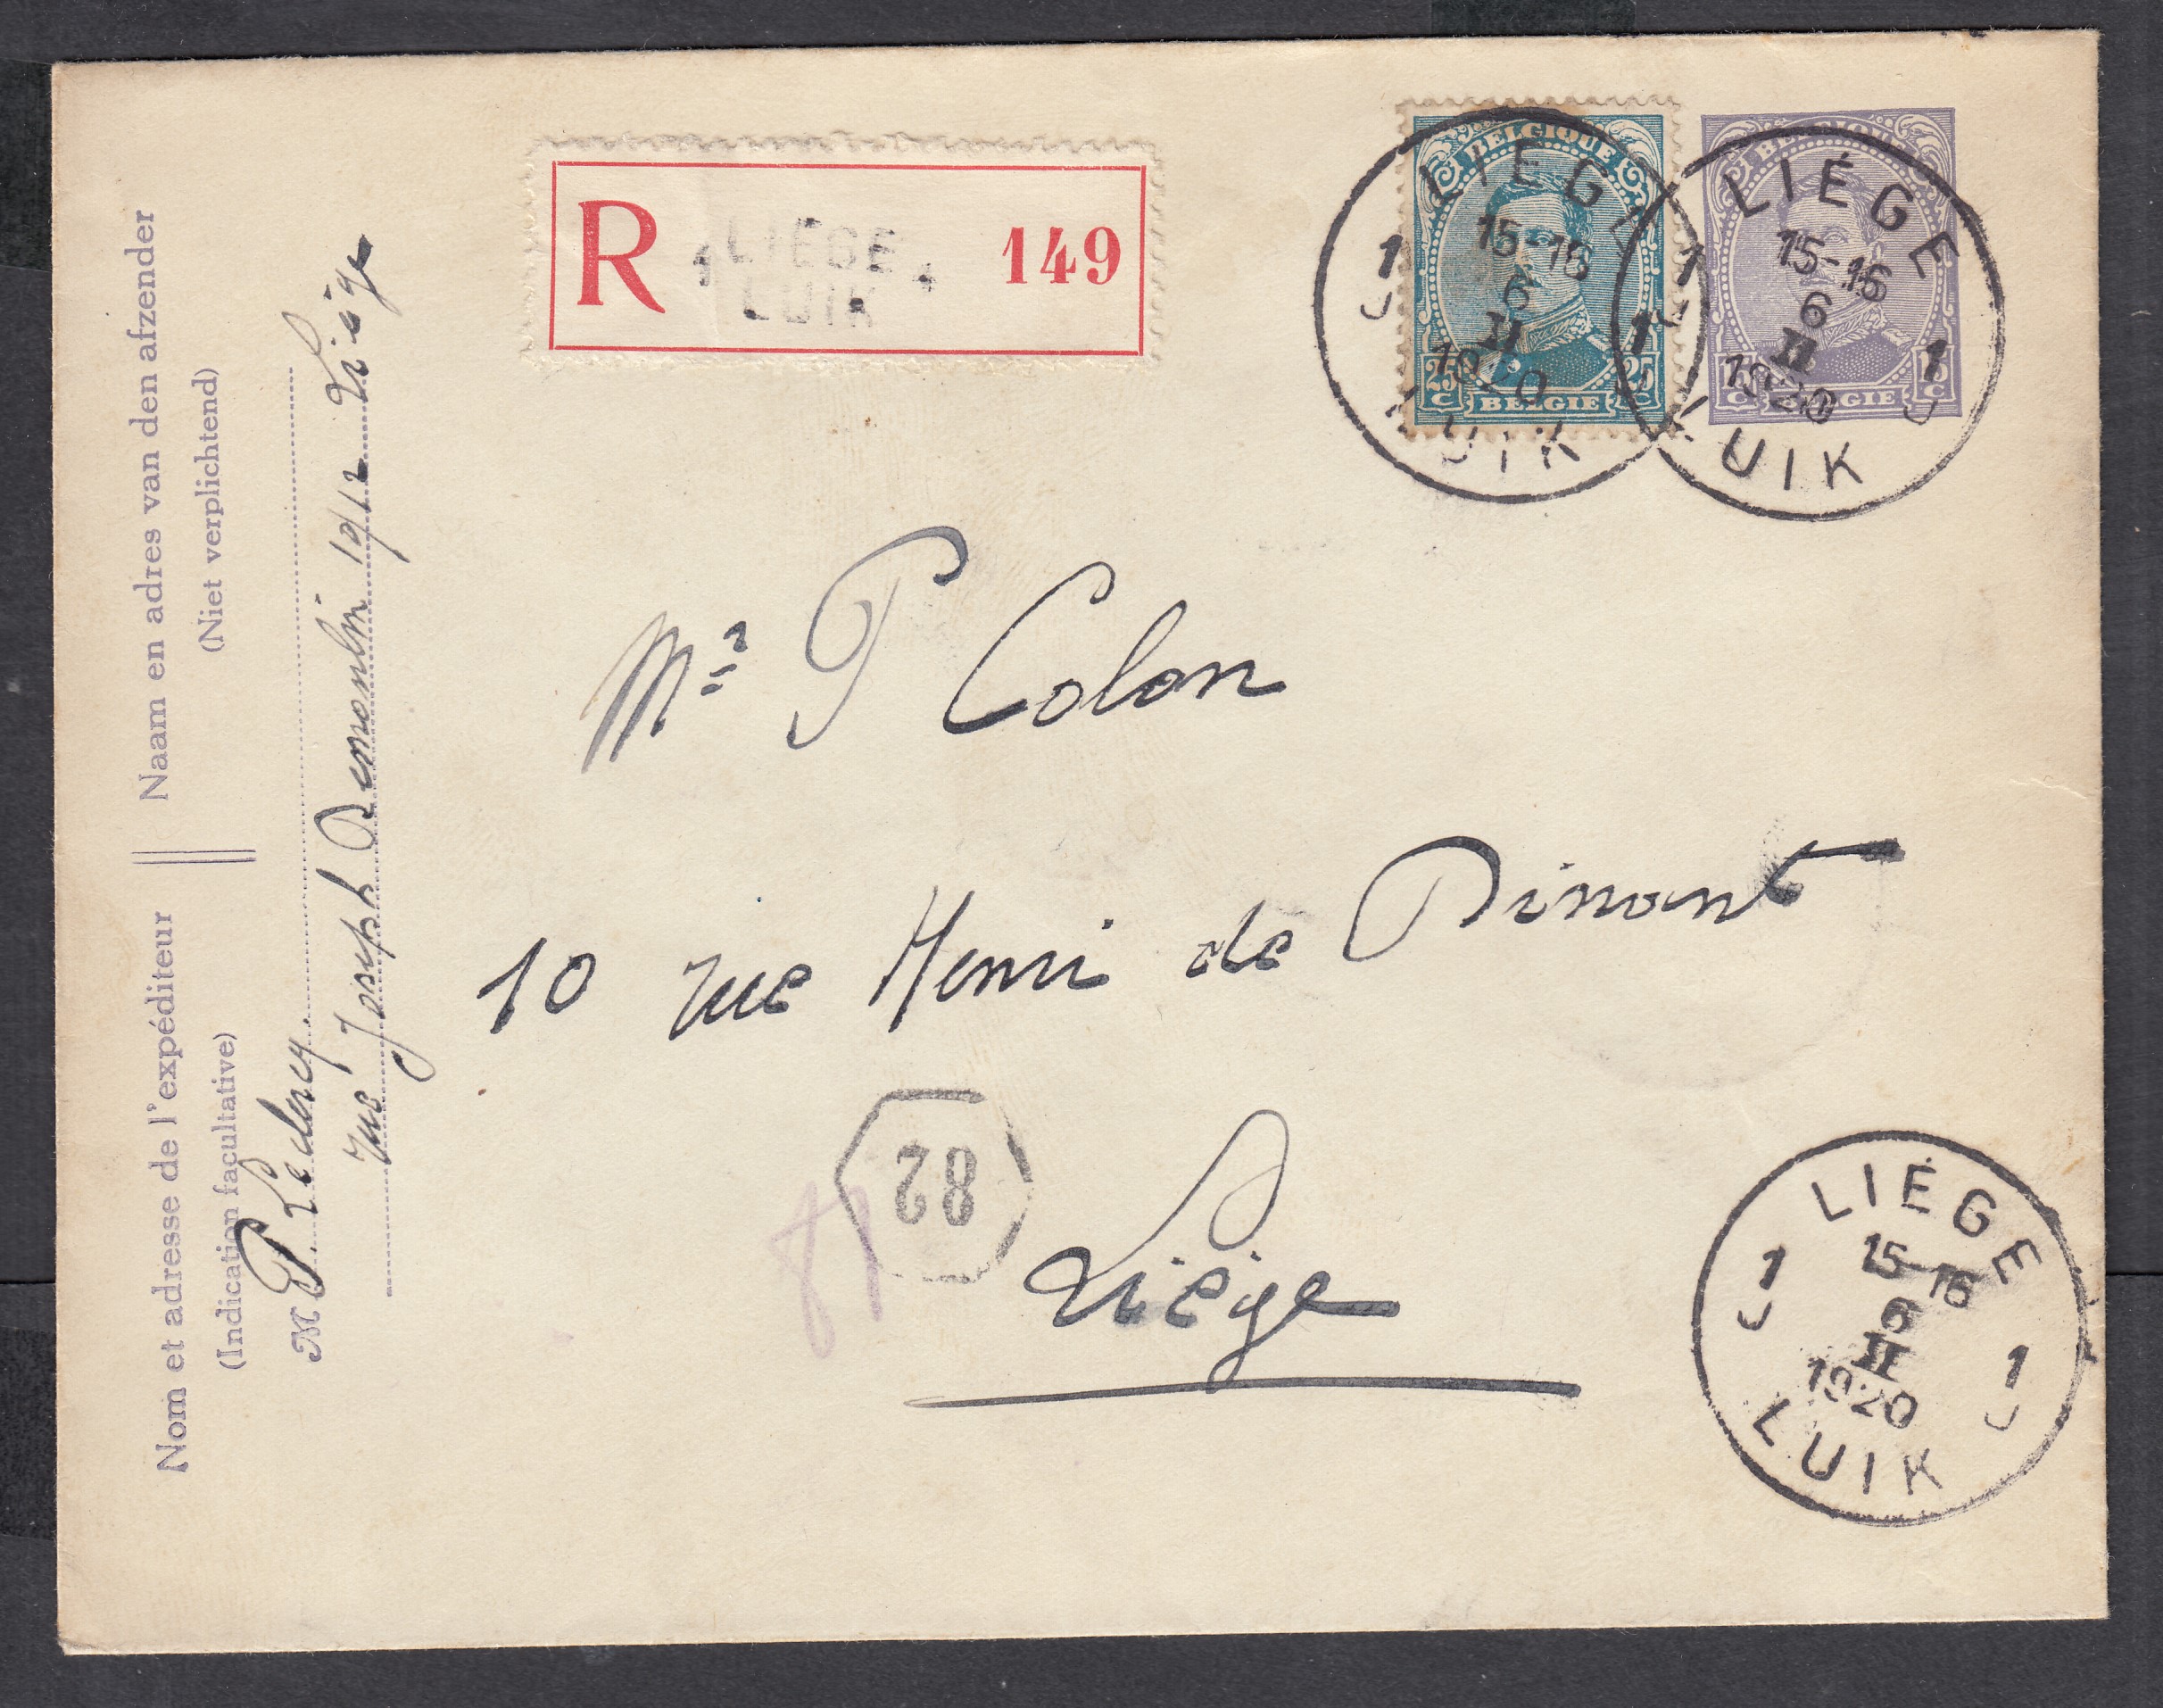 R 1 LIÉGE 1 149
LUIK
BELGIQUE
25 C BELGIE 25 C
BELGIQUE
15 C BELGIE 15 C
LIÉGE
15-16
6
II
1920
1 J
1 J
LUIK
LIÉGE
15-16
6
II
1920
1 J
1 J
LUIK
Mr P Colon
10 rue Henri de Dinant
Liége
82
LIÉGE
1 15-16
J 6
II 1
1920 J
LUIK
Nom et adresse de l'expéditeur || Naam en adres van den afzender
(Indication facultative) (Niet verplichtend)
M P.
rue Joseph Demoulin 19/12 Liége